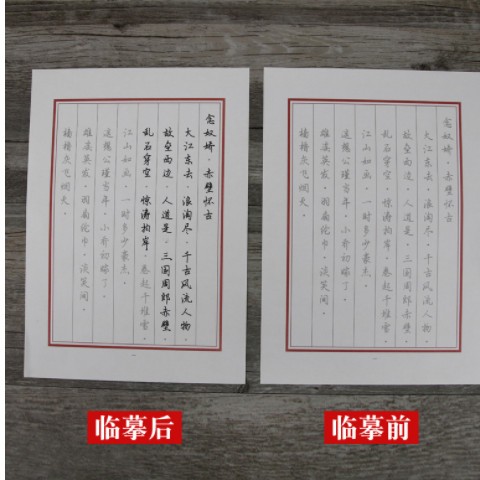 念奴娇·赤壁怀古
大江东去。浪淘尽。千古风流人物。
故垒西边。人道是。三国周郎赤壁。
乱石穿空。惊涛拍岸。卷起千堆雪。
江山如画。一时多少豪杰。
遥想公瑾当年。小乔初嫁了。
雄姿英发。羽扇纶巾。谈笑间。
樯橹灰飞烟灭。
临摹后
念奴娇·赤壁怀古
大江东去。浪淘尽。千古风流人物。
故垒西边。人道是。三国周郎赤壁。
乱石穿空。惊涛拍岸。卷起千堆雪。
江山如画。一时多少豪杰。
遥想公瑾当年。小乔初嫁了。
雄姿英发。羽扇纶巾。谈笑间。
樯橹灰飞烟灭。
临摹前